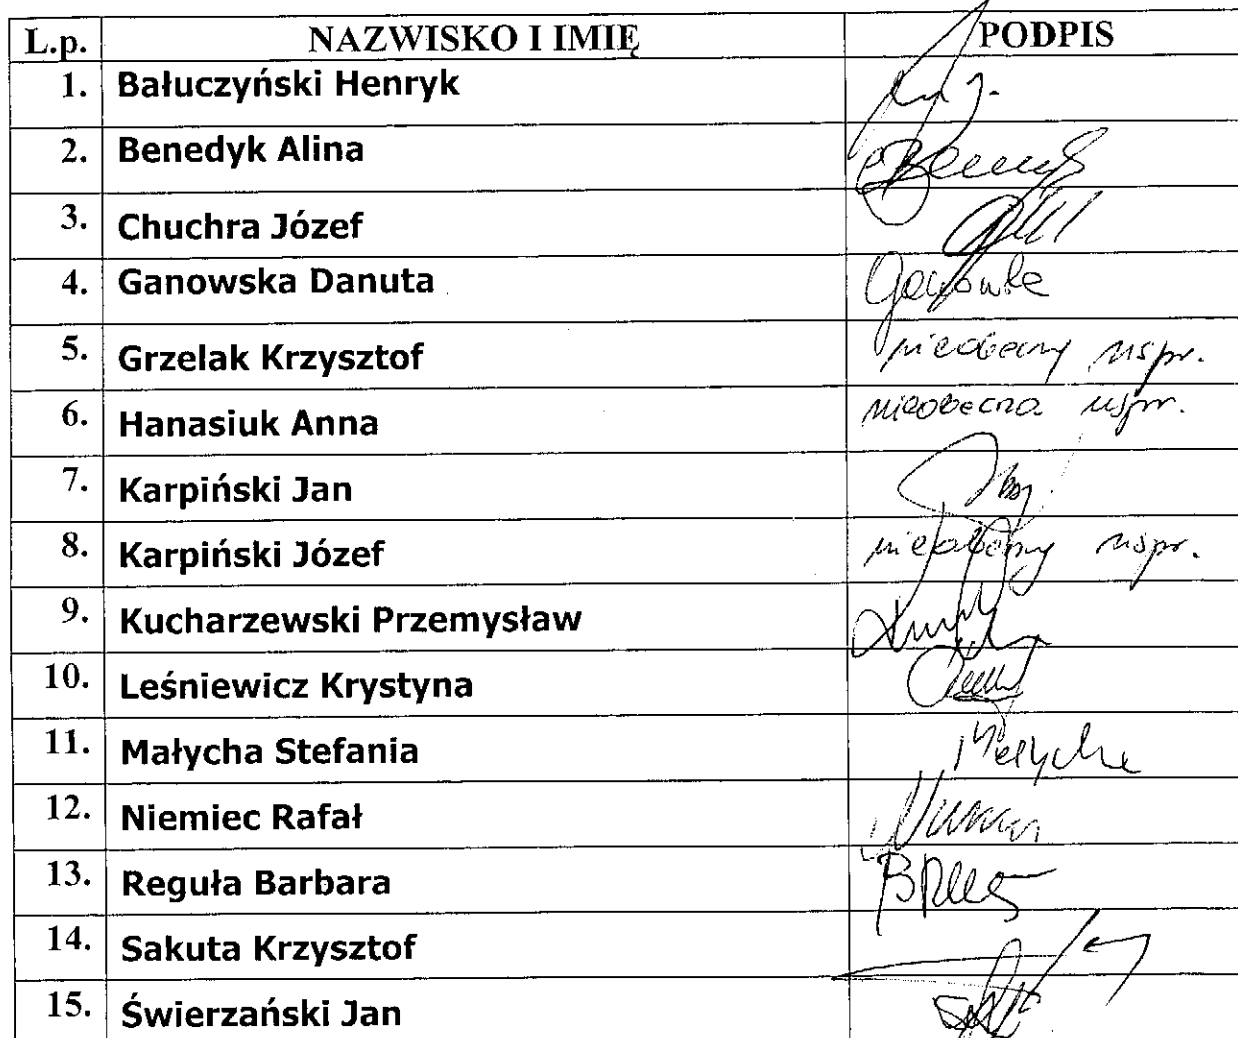 L.p. NAZWISKO I IMIĘ PODPIS
1. Bałuczyński Henryk
2. Benedyk Alina
3. Chuchra Józef
4. Ganowska Danuta Ganowska
5. Grzelak Krzysztof nieobecny uspr.
6. Hanasiuk Anna nieobecna uspr.
7. Karpiński Jan
8. Karpiński Józef nieobecny uspr.
9. Kucharzewski Przemysław
10. Leśniewicz Krystyna
11. Małycha Stefania Małycha
12. Niemiec Rafał
13. Reguła Barbara
14. Sakuta Krzysztof
15. Świerzański Jan